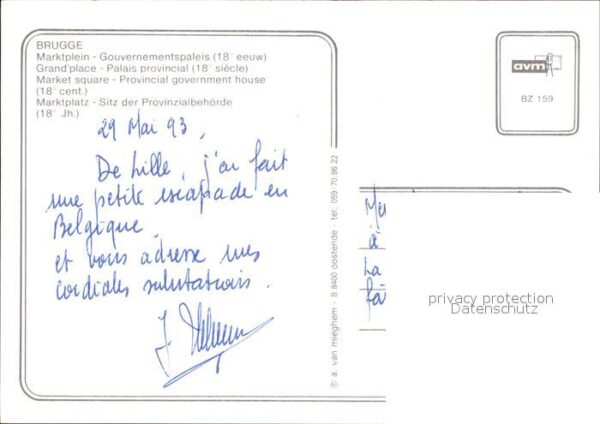 BRUGGE
Marktplein - Gouvernementspaleis (18e eeuw)
Grand'place - Palais provincial (18e siècle)
Market square - Provincial government house
(18e cent.)
Marktplatz - Sitz der Provinzialbehörde
(18e Jh.)
29 Mai 93,
De Lille, j'ai fait
une petite escapade en
Belgique
et vous adresse mes
cordiales salutations.
J.
© a. van mieghem - B 8400 oostende - tel. 059 70 86 22
avm
BZ 159
à
La
privacy protection
Datenschutz